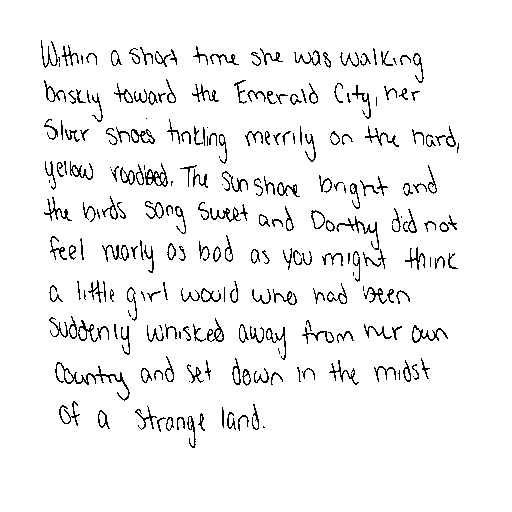 Within a short time she was walking
briskly toward the Emerald City, her
Silver Shoes tinkling merrily on the hard,
yellow roadbed. The sun shone bright and
the birds song sweet and Dorthy did not
feel nearly as bad as you might think
a little girl would who had been
suddenly whisked away from her own
Country and set down in the midst
of a strange land.